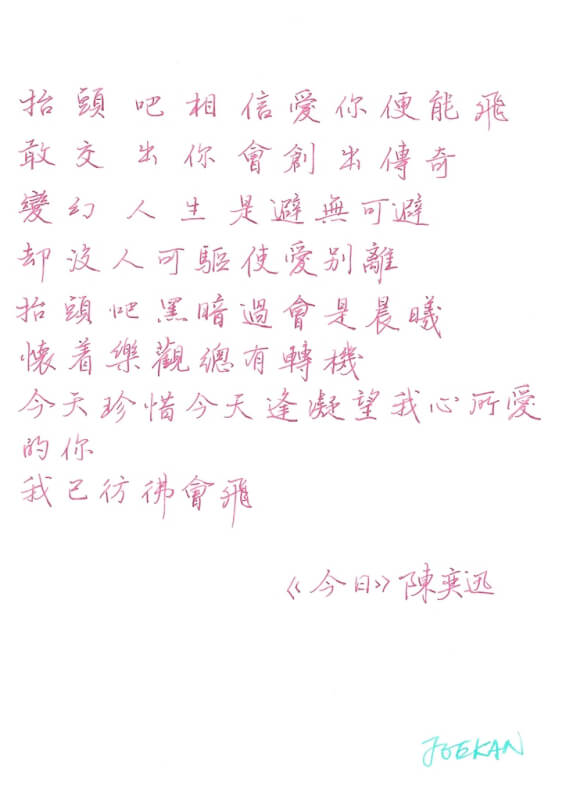 抬頭吧相信愛你便能飛
敢交出你會創出傳奇
變幻人生是避無可避
却没人可驅使愛別離
抬頭吧黑暗過會是晨曦
懷着樂觀總有轉機
今天珍惜今天逢凝望我心所愛
的你
我已彷彿會飛
《今日》陳奕迅
JOEKAN